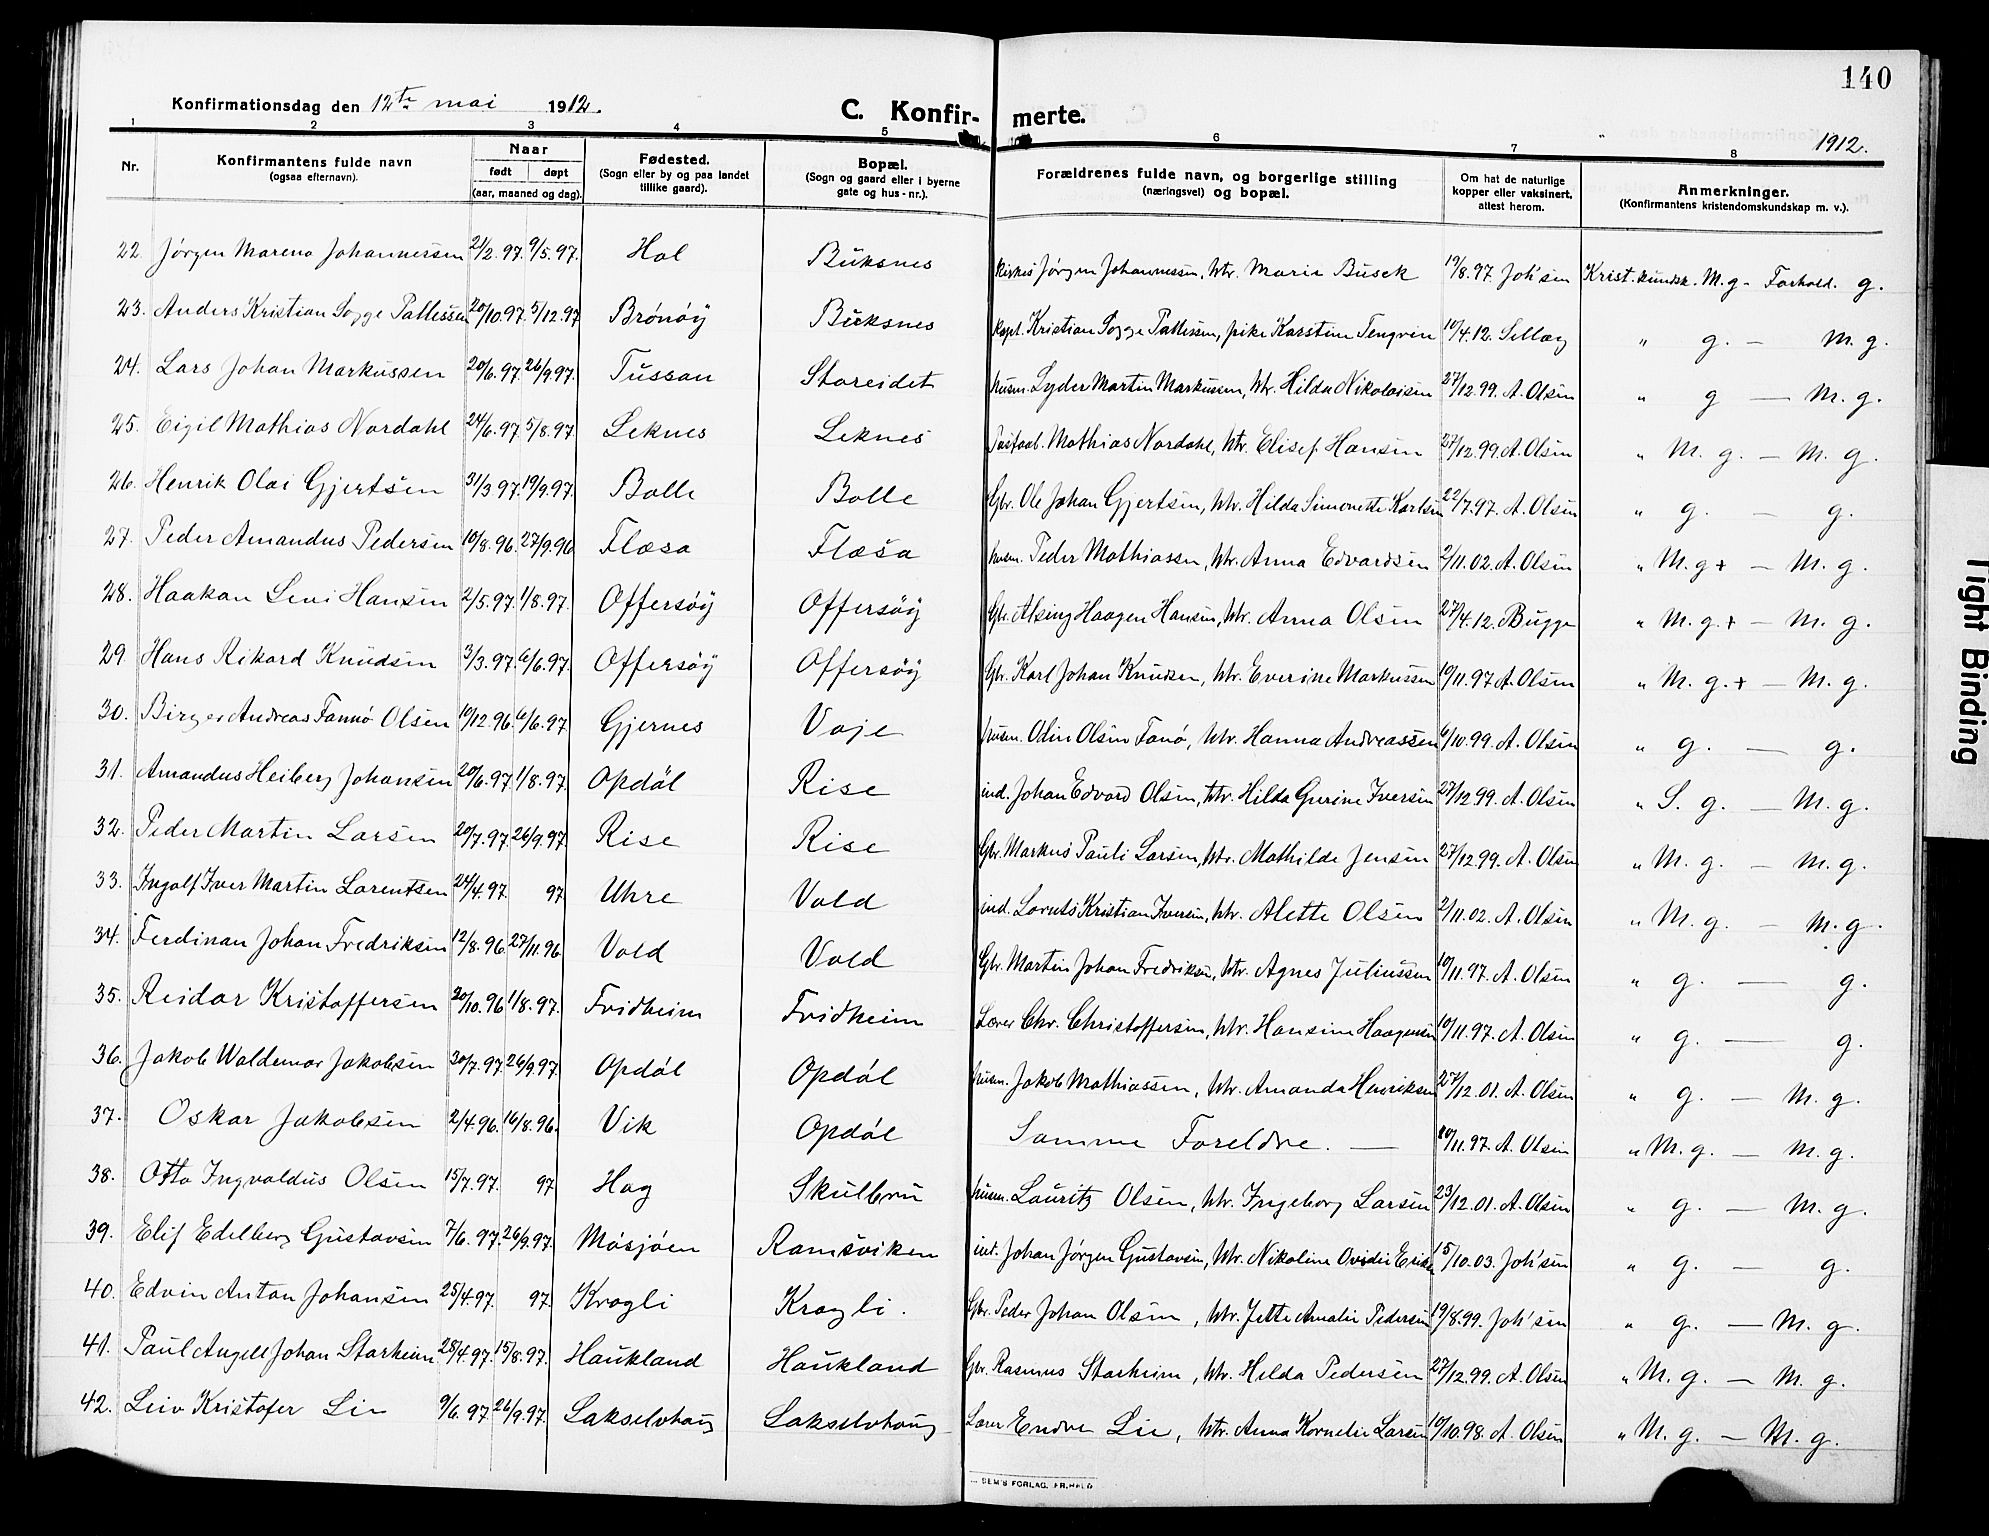 140
Konfirmationsdag den 12te mai 1912. C. Konfir- merte. 1912.
1 2 3 4 5 6 7 8
Nr. Konfirmantens fulde navn (ogsaa efternavn). Naar født døpt (aar, maaned og dag). Fødested. (Sogn eller by og paa landet tillike gaard). Bopæl. (Sogn og gaard eller i byerne gate og hus-nr.). Forældrenes fulde navn, og borgerlige stilling (næringsvei) og bopæl. Om hat de naturlige kopper eller vaksinert, attest herom. Anmerkninger. (Konfirmantens kristendomskundskap m. v.).
22. Jørgen Mareno Johannessen 21/2.97. 9/5.97. Hol Buksnes Jørgen Johannessen, htr. Marie Busck 19/8.97. Joh'sen Krist.kundsk. M.g - Forhold. g.
23. Anders Kristian Sogge Pallessen 20/10.97. 5/12.97 Brønøy Buksnes Kapt. Kristian Sogge Pallessen, pike Karstine Tengren 10/4.12. " g. — M.g.
24. Lars Johan Markussen 20/6.97. 26/9.97. Tussan Storeidet husm. Lyder Martin Markussen, htr. Hilda Nikolaisen 27/12.99. A. Olsen " g — M.g.
25. Eigil Mathias Nordahl 24/6.97. 5/8.97. Leknes Leknes Mathias Nordahl, htr. Elisef Hansen 27/12.99. A. Olsen " M.g. — M.g.
26. Henrik Olai Gjertsen 31/3.97. 19/9.97. Bolle Bolle Gbr. Ole Johan Gjertsen, htr. Hilda Simonette Karlsen 22/7.97. A. Olsen " g. — g.
27. Peder Amandus Pedersen 10/8.96. 27/9.96 Flæsa Flæsa husm. Peder Mathiassen, htr. Anna Edvardsen 2/11.02. A. Olsen " M.g+ — M.g.
28. Haakon Levi Hansen 2/5.97. 1/8.97. Offersøy Offersøy Gbr. Alsing Haagen Hansen, htr. Anna Olsen 27/4.12. Bugge " M.g.+ — M.g.
29 Hans Rikard Knudsen 3/3.97. 6/6.97. Offersøy Offersøy Gbr. Karl Johan Knudsen, htr. Everine Markussen 10/11.97 A. Olsen " M.g.+ — M.g.
30. Birger Andreas Fannø Olsen 10/12.96. 6/6.97. Gjernes Voje husm. Odin Olsen Fanø, htr. Hanna Andreassen 6/10.99. A. Olsen " g. — g.
31. Amandus Heiberg Johansen 20/6.97. 1/8.97. Opdøl Rise ind. Johan Edvard Olsen, htr. Hilda Gurine Iversen 27/12.99. A. Olsen " S.g. — M.g.
32. Peder Martin Larsen 20/7.97. 26/9.97 Rise Rise Gbr. Markus Pauli Larsen, htr. Mathilde Jensen 27/12.99. A. Olsen " M.g. — M.g.
33. Ingolf Iver Martin Lorentsen 24/4.97. 97 Uhre Vold ind. Lorents Kristian Iversen, htr. Alette Olsen 2/11.02. A. Olsen " M.g. — M.g.
34. Ferdinan Johan Fredriksen 12/8.96. 27/11.96. Vold Vold Gbr. Martin Johan Fredriksen, htr. Agnes Juliussen 10/11.97. A. Olsen " g. — g.
35. Reidar Kristoffersen 20/10.96 1/8.97. Fridheim Fridheim Lærer Chr. Christoffersen, htr. Hansine Haagensen 10/11.97. A. Olsen " g. — g.
36. Jakob Waldemar Jakobsen 30/7.97. 26/9.97. Opdøl Opdøl husm. Jakob Mathiassen, htr. Amanda Henriksen 27/12.01. A. Olsen " g. — M.g.
37. Oskar Jakobsen 2/4.96. 16/8.96. Vik Opdøl Samme Foreldre. — 10/11.97. A. Olsen " M.g. — M.g.
38. Otto Ingvaldus Olsen 15/7.97. 97 Hag Skulbru husm. Lauritz Olsen, htr. Ingeborg Larsen 23/12.01. A. Olsen " g. — M.g.
39. Elif Edelberg Gustavsen 7/6.97. 26/9.97. Mosjøen Ramsviken ind. Johan Jørgen Gustavsen, htr. Nikoline Ovidie Eriksen 15/10.03. Joh'sen " g. — g.
40. Edvin Anton Johansen 25/4.97. 97. Kragli Kragli. Gbr. Peder Johan Olsen, htr. Jette Amalie Pedersen 19/8.99. Joh'sen " g. — M.g.
41. Paul Angell Johan Starheim 28/4.97. 15/8.97. Haukland Haukland Gbr. Rasmus Starheim, htr. Hilda Pedersen 27/12.99. A. Olsen " M.g. — M.g.
42. Leiv Kristofer Lie 9/6.97. 26/9.97. Lakselvhaug Lakselvhaug Lærer Endre Lie, htr. Anna Kornelie Larsen 10/10.98. A. Olsen " M.g. — M.g.
SEM'S FORLAG, FR.HALD
Tight Binding